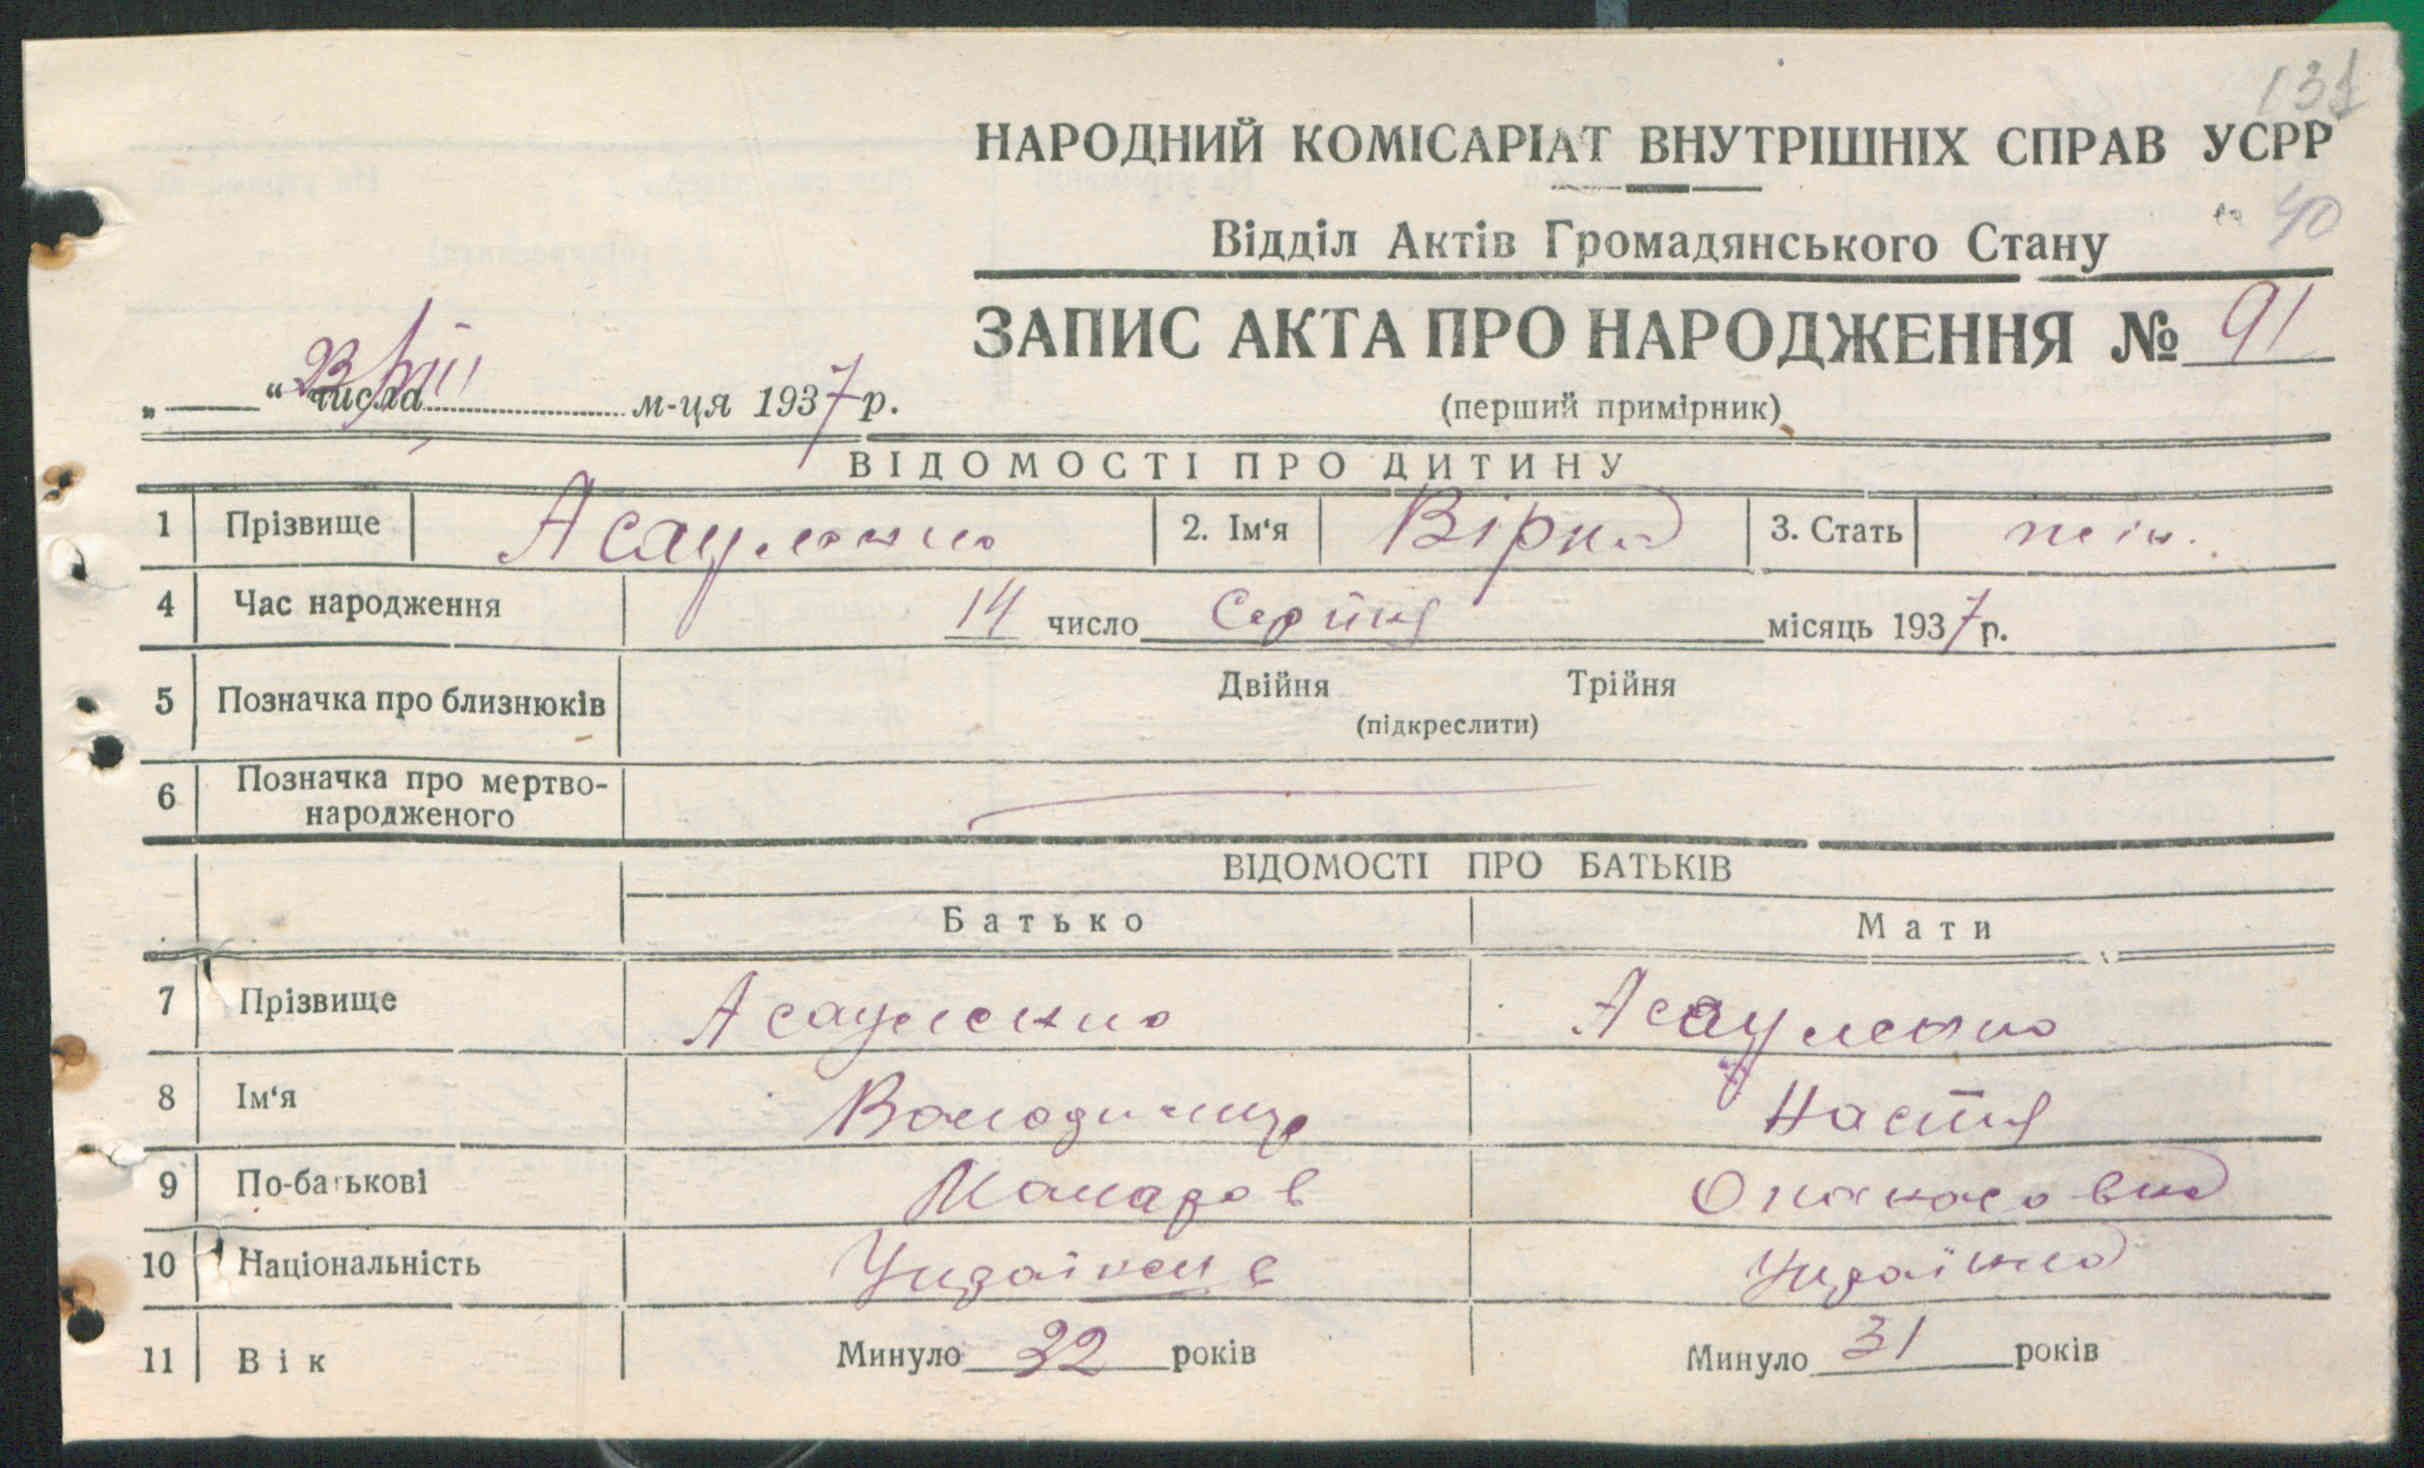 131
НАРОДНИЙ КОМІСАРІАТ ВНУТРІШНІХ СПРАВ УСРР
40
Відділ Актів Громадянського Стану
ЗАПИС АКТА ПРО НАРОДЖЕННЯ № 91
„ “ 23 числа VIII м-ця 1937 р.
(перший примірник)
ВІДОМОСТІ ПРО ДИТИНУ
1 Прізвище Асауленко 2. Ім‘я Вірка 3. Стать жін.
4 Час народження 14 число Серпня місяць 1937 р.
5 Позначка про близнюків Двійня Трійня
(підкреслити)
6 Позначка про мертво-
народженого
ВІДОМОСТІ ПРО БАТЬКІВ
Батько Мати
7 Прізвище Асауленко Асауленко
8 Ім‘я Володимир Настя
9 По-батькові Макаров Опанасовна
10 Національність Українець Українка
11 Вік Минуло 32 років Минуло 31 років